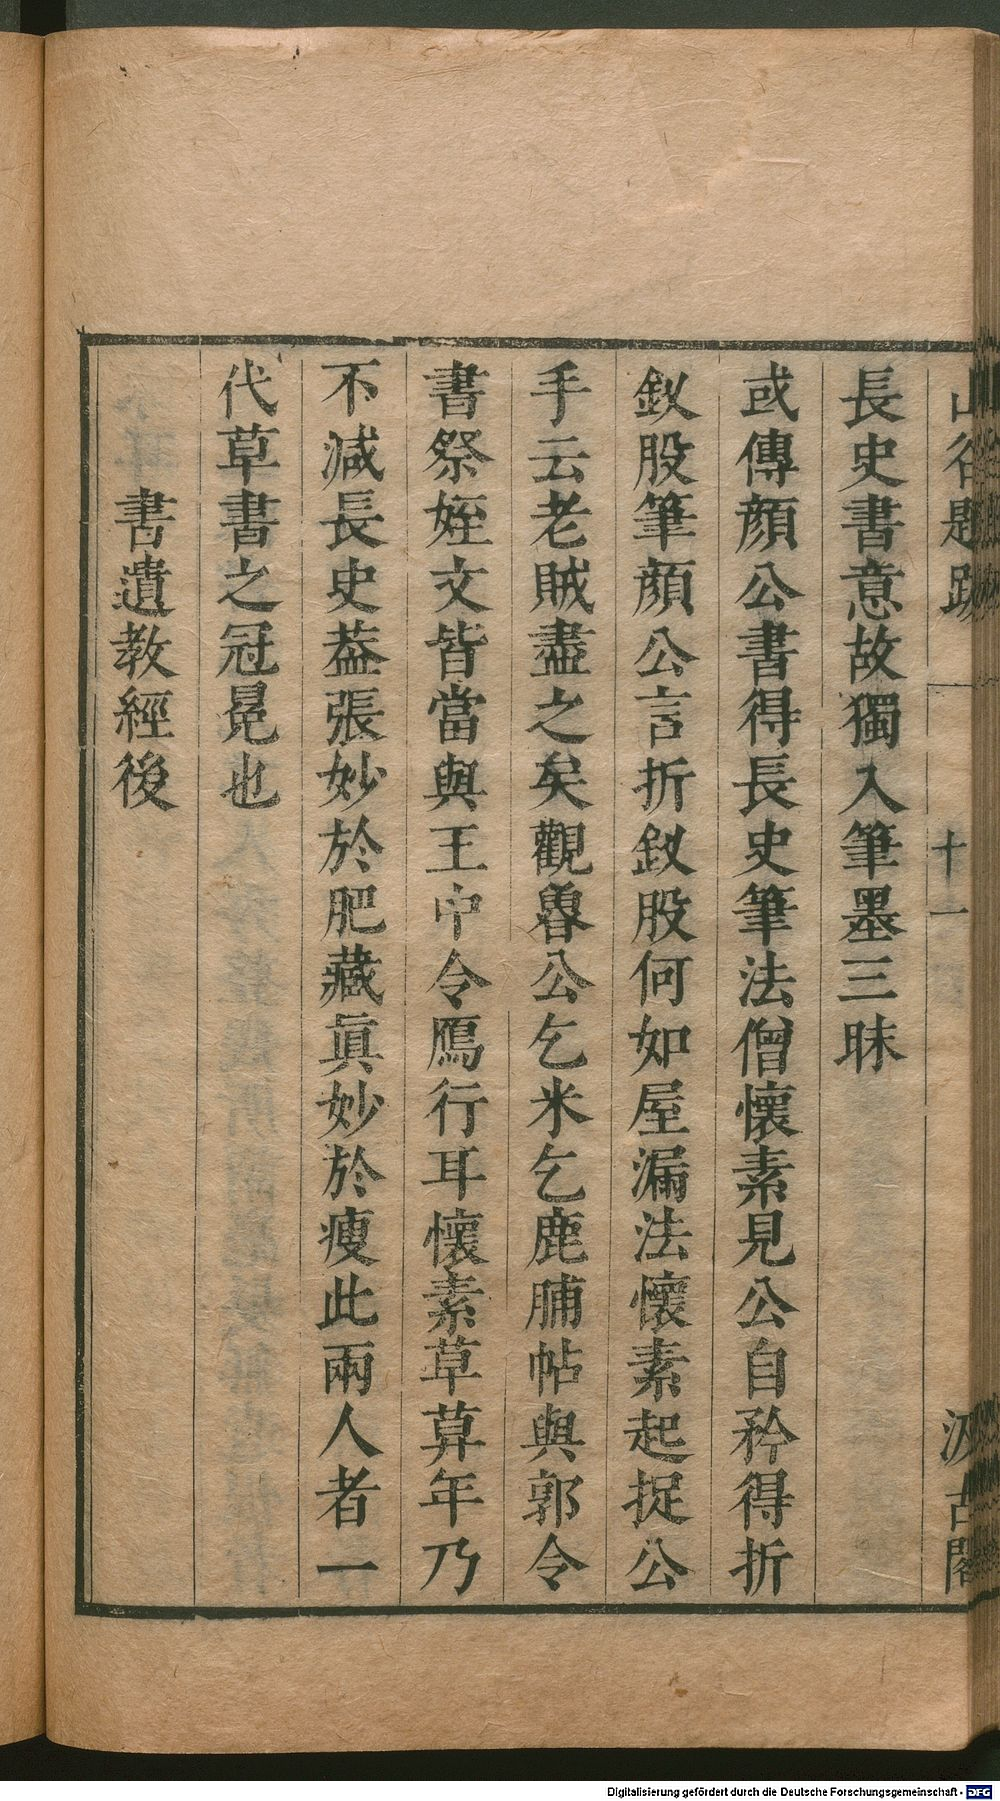 山谷題跋 十一 汲古閣
長史書意故獨入筆墨三昧
或傳顔公書得長史筆法僧懷素見公自矜得折
釵股筆顔公言折釵股何如屋漏法懷素起捉公
手云老賊盡之矣觀魯公乞米乞鹿脯帖與郭令
書祭姪文皆當與王中令鴈行耳懷素草暮年乃
不減長史葢張妙於肥藏眞妙於瘦此兩人者一
代草書之冠冕也
書遺教經後
Digitalisierung gefördert durch die Deutsche Forschungsgemeinschaft - DFG